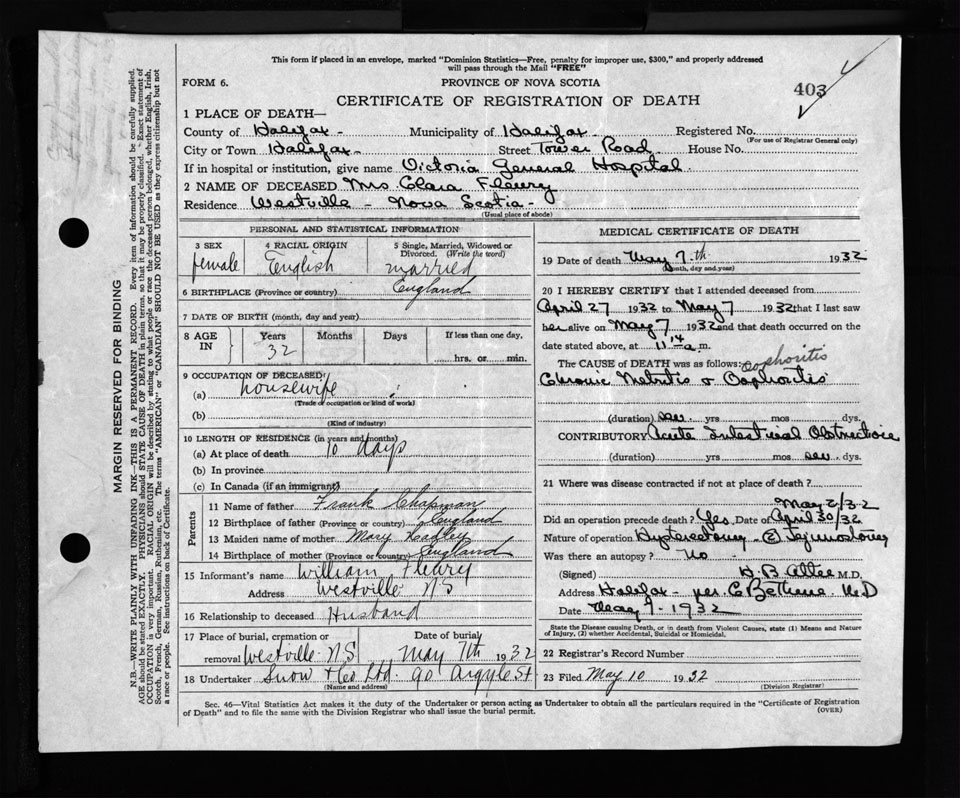 This form if placed in an envelope, marked "Dominion Statistics—Free, penalty for improper use, $300," and properly addressed
will pass through the Mail "FREE"
FORM 6. PROVINCE OF NOVA SCOTIA
403
CERTIFICATE OF REGISTRATION OF DEATH
1 PLACE OF DEATH—
County of Halifax - Municipality of Halifax - Registered No.
(For use of Registrar General only)
City or Town Halifax - Street Tower Road House No.
If in hospital or institution, give name Victoria General Hospital.
2 NAME OF DECEASED Mrs Clara Fleury
Residence Westville - Nova Scotia -
(Usual place of abode)
PERSONAL AND STATISTICAL INFORMATION
3 SEX 4 RACIAL ORIGIN 5 Single, Married, Widowed or
Divorced. (Write the word)
female English married
6 BIRTHPLACE (Province or country) England
7 DATE OF BIRTH (month, day and year)
8 AGE IN Years Months Days If less than one day,
32 hrs. or min.
9 OCCUPATION OF DECEASED
(a) housewife
(Trade or occupation or kind of work)
(b)
(Kind of industry)
10 LENGTH OF RESIDENCE (in years and months)
(a) At place of death 10 days
(b) In province
(c) In Canada (if an immigrant)
Parents
11 Name of father Frank Chapman
12 Birthplace of father (Province or country) England
13 Maiden name of mother Mary
14 Birthplace of mother (Province or country) England
15 Informant's name William Fleury
Address Westville NS
16 Relationship to deceased Husband
17 Place of burial, cremation or Date of burial
removal Westville NS May 7th 1932
18 Undertaker Snow & Co Ltd. 90 Argyle St
(Name and address)
MEDICAL CERTIFICATE OF DEATH
19 Date of death May 7th 1932
(Month, day and year)
20 I HEREBY CERTIFY that I attended deceased from
April 27 1932 to May 7 1932 that I last saw
her alive on May 7 1932 and that death occurred on
date stated above, at 11 14 a.m.
The CAUSE OF DEATH was as follows: oophoritis
Chronic Metritis & Oophoritis
(duration) sev. yrs mos dys.
CONTRIBUTORY Acute Intestinal Obstruction
(duration) yrs mos sev. dys.
21 Where was disease contracted if not at place of death?
May 2/32
Did an operation precede death? Yes Date of April 30/32
Nature of operation Hysterectomy (2) Jejunostomy
Was there an autopsy? No
(Signed) H. B. Atlee M.D.
Address Halifax - per. C Bethune M.D
Date May 7 - 1932
State the Disease causing Death, or in death from Violent Causes, state (1) Means and Nature
of Injury, (2) whether Accidental, Suicidal or Homicidal.
22 Registrar's Record Number
23 Filed May 10 1932
(Division Registrar)
Sec. 46—Vital Statistics Act makes it the duty of the Undertaker or person acting as Undertaker to obtain all the particulars required in the "Certificate of Registration
of Death" and to file the same with the Division Registrar who shall issue the burial permit. (OVER)
MARGIN RESERVED FOR BINDING
N.B.—WRITE PLAINLY WITH UNFADING INK—THIS IS A PERMANENT RECORD. Every item of information should be carefully supplied.
AGE should be stated EXACTLY. PHYSICIANS should STATE CAUSE OF DEATH in plain terms, so that it may be properly classified. Exact statement of
OCCUPATION is very important. RACIAL ORIGIN will be described by stating to what people or race the deceased person belonged, whether English, Irish,
Scotch, French, German, Russian, Ruthenian, etc. The terms "AMERICAN" or "CANADIAN" SHOULD NOT BE USED as they express citizenship but not
a race or people. See instructions on back of Certificate.